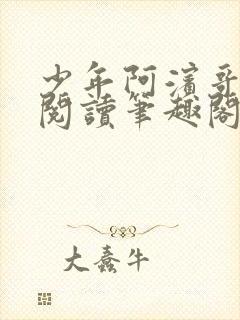 少年阿濱哥
閱讀筆趣閣
大蠢牛